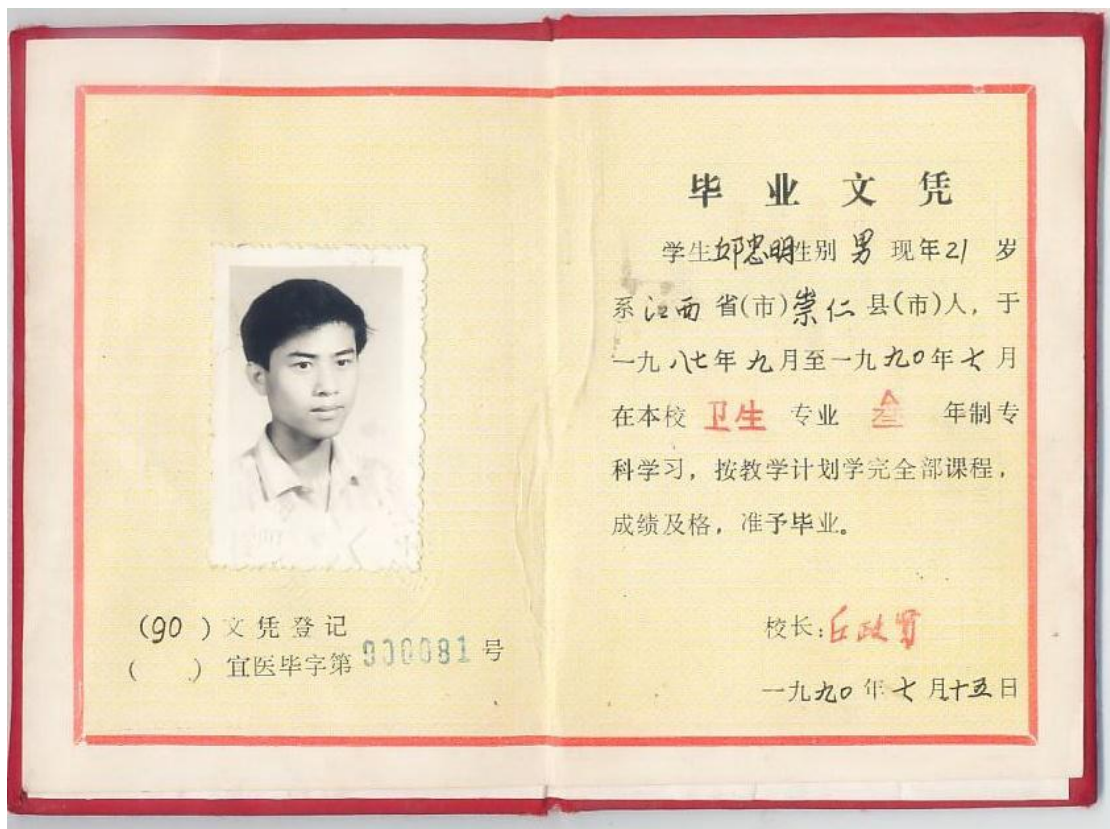 (90 ) 文凭登记
( ) 宜医毕字第 900081 号
毕业文凭
学生邱忠明性别 男 现年21 岁
系江西省(市)崇仁县(市)人，于
一九八七年九月至一九九0年七月
在本校 卫生 专业 叁 年制专
科学习，按教学计划学完全部课程，
成绩及格，准予毕业。
校长：丘政贤
一九九0年七月十五日